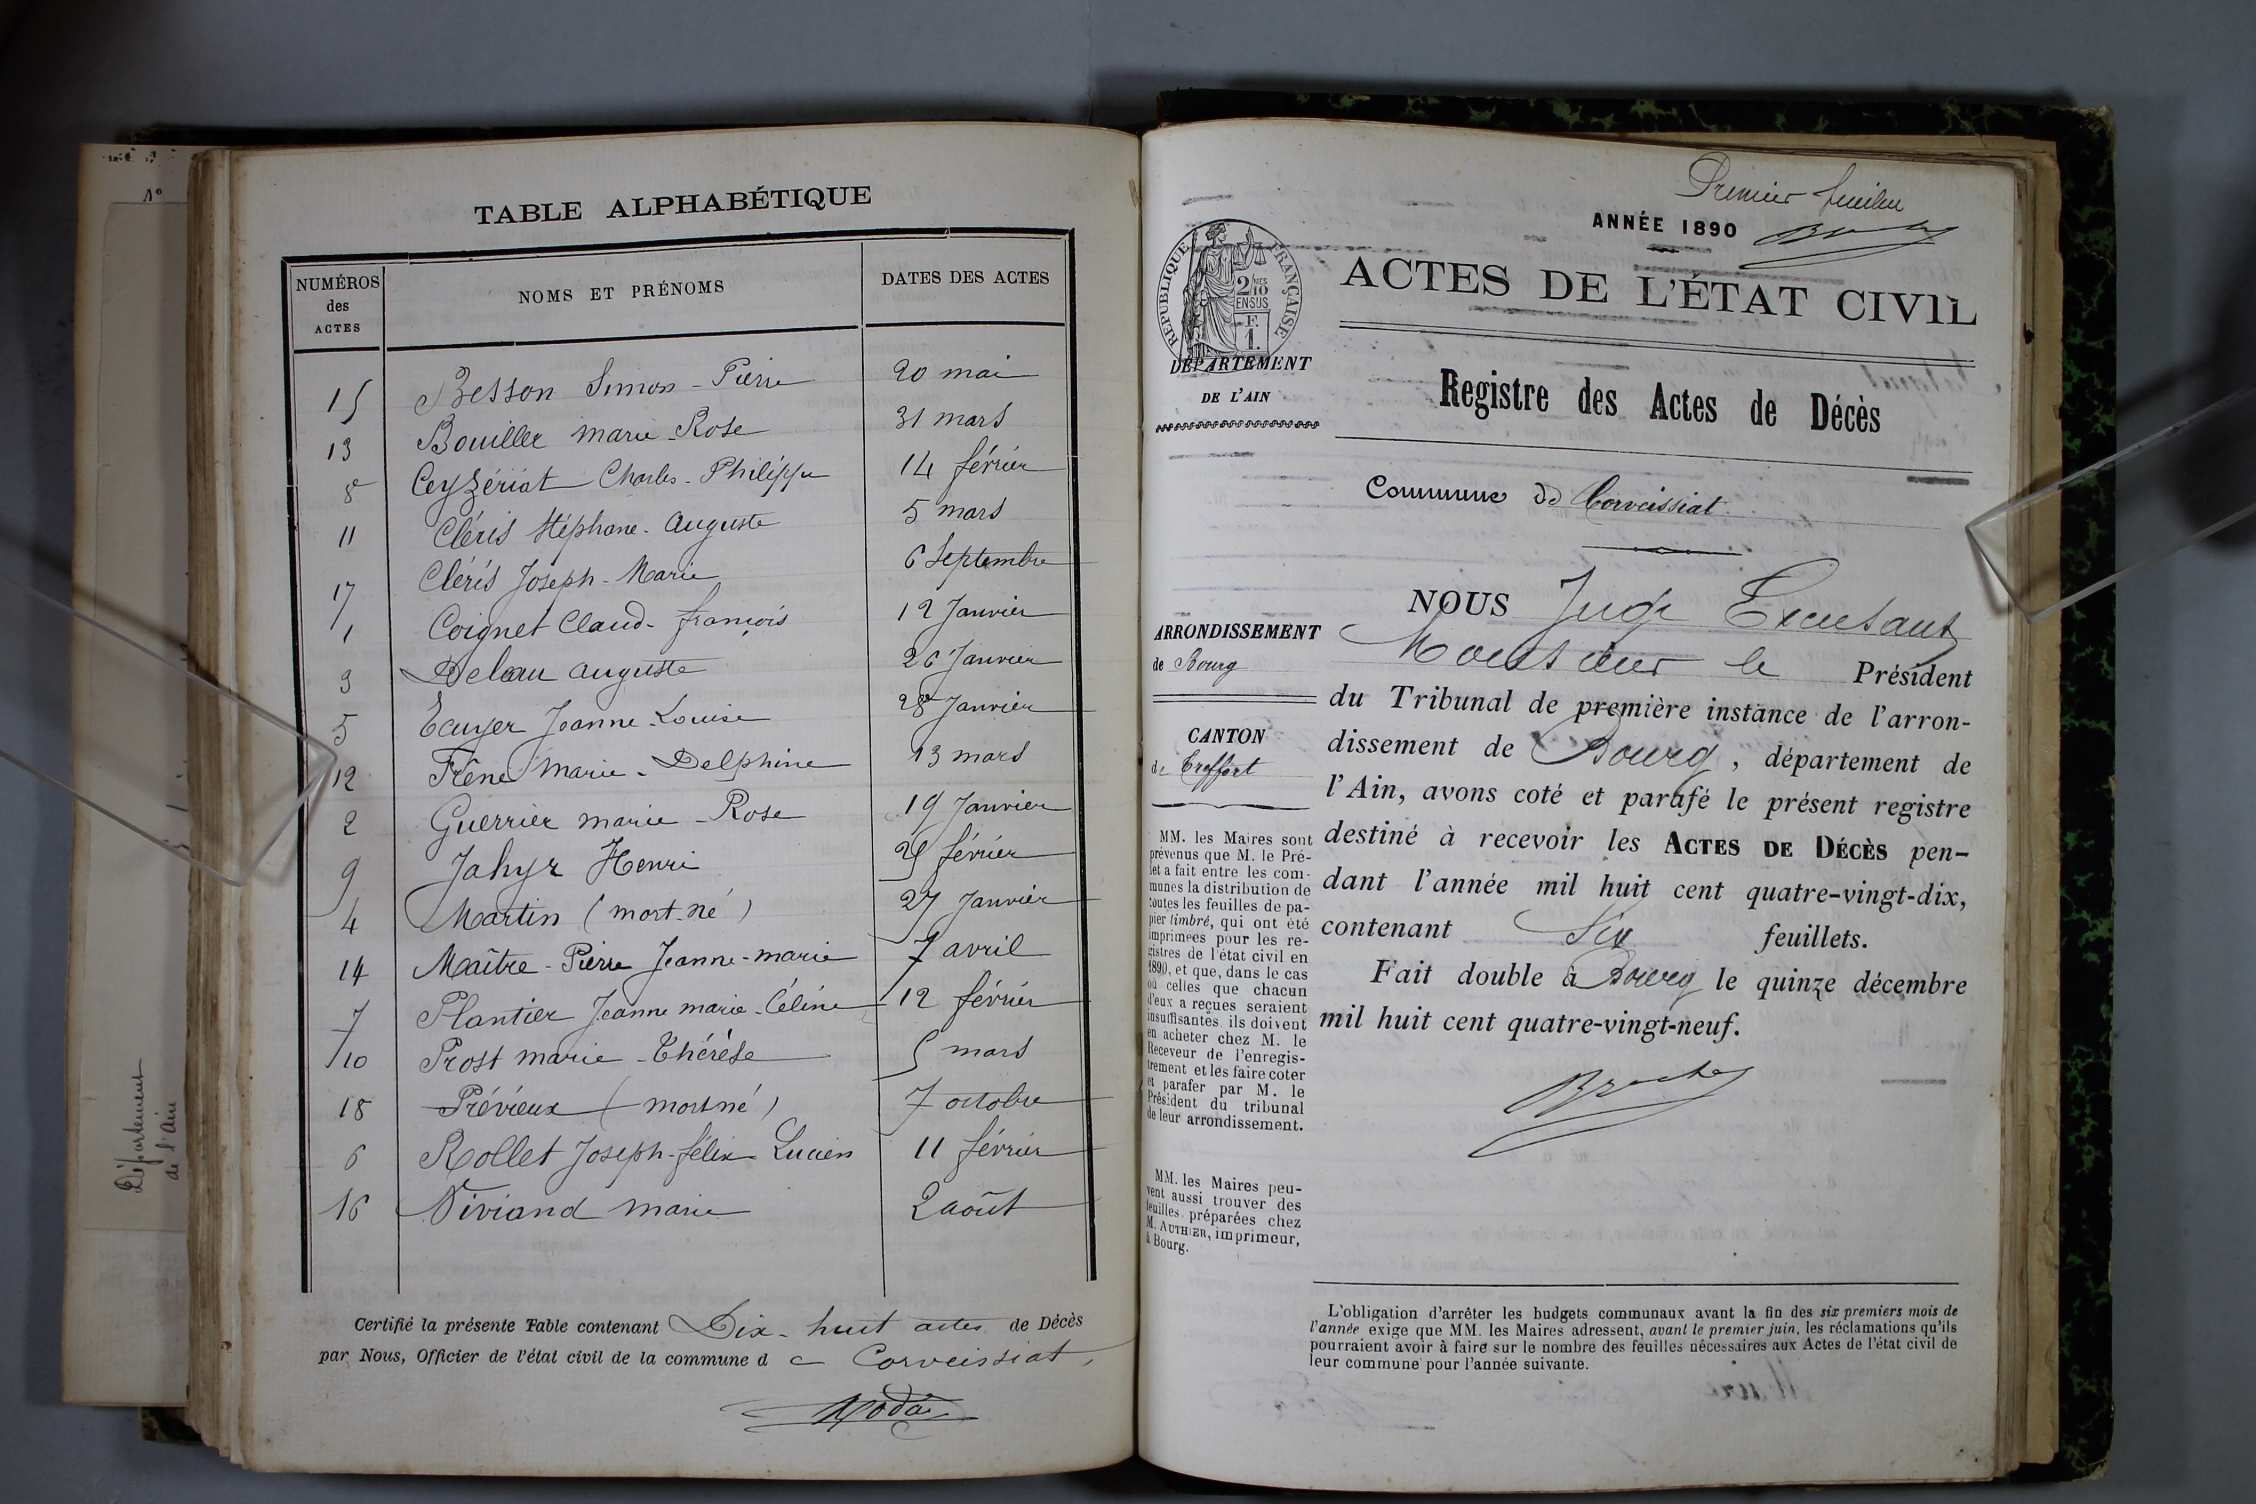 TABLE ALPHABÉTIQUE
NUMÉROS des ACTES
NOMS ET PRÉNOMS
DATES DES ACTES
15 Besson Simon-Pierre 20 mai
13 Bouiller marie-Rose 31 mars
8 Ceyzériat Charles-Philippe 14 février
11 Cléris Stéphane-Auguste 5 mars
17 Cléris Joseph-Marie 6 Septembre
1 Coignet Claud-françois 12 Janvier
3 Deleau Auguste 26 Janvier
5 Ecuyer Jeanne-Louise 28 Janvier
12 Frêne Marie-Delphine 13 mars
2 Guerrier marie-Rose 19 Janvier
9 Jahyr Henri 25 février
4 Martin (mort-né) 27 Janvier
14 Maître-Pierre Jeanne-marie 7 avril
7 Plantier Jeanne marie-Céline 12 février
10 Prost marie-Thérèse 5 mars
18 Prévieux (mort né) 7 octobre
6 Rollet Joseph-félix Lucien 11 février
16 Viviand marie 2 août
Certifié la présente Table contenant Dix-huit actes de Décès
par Nous, Officier de l'état civil de la commune de Corveissiat,
Département
de l'Ain
Premier feuillet
ANNÉE 1890
ACTES DE L'ÉTAT CIVIL
RÉPUBLIQUE FRANÇAISE
2/10 MES
EN SUS
F.
1.
DÉPARTEMENT
DE L'AIN
Registre des Actes de Décès
Commune de Corveissiat
ARRONDISSEMENT
de Bourg
CANTON
de Treffort
MM. les Maires sont
prévenus que M. le Pré-
fet a fait entre les com-
munes la distribution de
toutes les feuilles de pa-
pier timbré, qui ont été
imprimées pour les re-
gistres de l'état civil en
1890, et que, dans le cas
où celles que chacun
d'eux a reçues seraient
insuffisantes ils doivent
en acheter chez M. le
Receveur de l'enregis-
trement et les faire coter
et parafer par M. le
Président du tribunal
de leur arrondissement.
MM. les Maires peu-
vent aussi trouver des
feuilles préparées chez
M. AUTHIER, imprimeur,
à Bourg.
NOUS Juge Excusant
Monsieur le Président
du Tribunal de première instance de l'arron-
dissement de Bourg, département de
l'Ain, avons coté et parafé le présent registre
destiné à recevoir les ACTES DE DÉCÈS pen-
dant l'année mil huit cent quatre-vingt-dix,
contenant Six feuillets.
Fait double à Bourg le quinze décembre
mil huit cent quatre-vingt-neuf.
L'obligation d'arrêter les budgets communaux avant la fin des six premiers mois de
l'année exige que MM. les Maires adressent, avant le premier juin, les réclamations qu'ils
pourraient avoir à faire sur le nombre des feuilles nécessaires aux Actes de l'état civil de
leur commune pour l'année suivante.